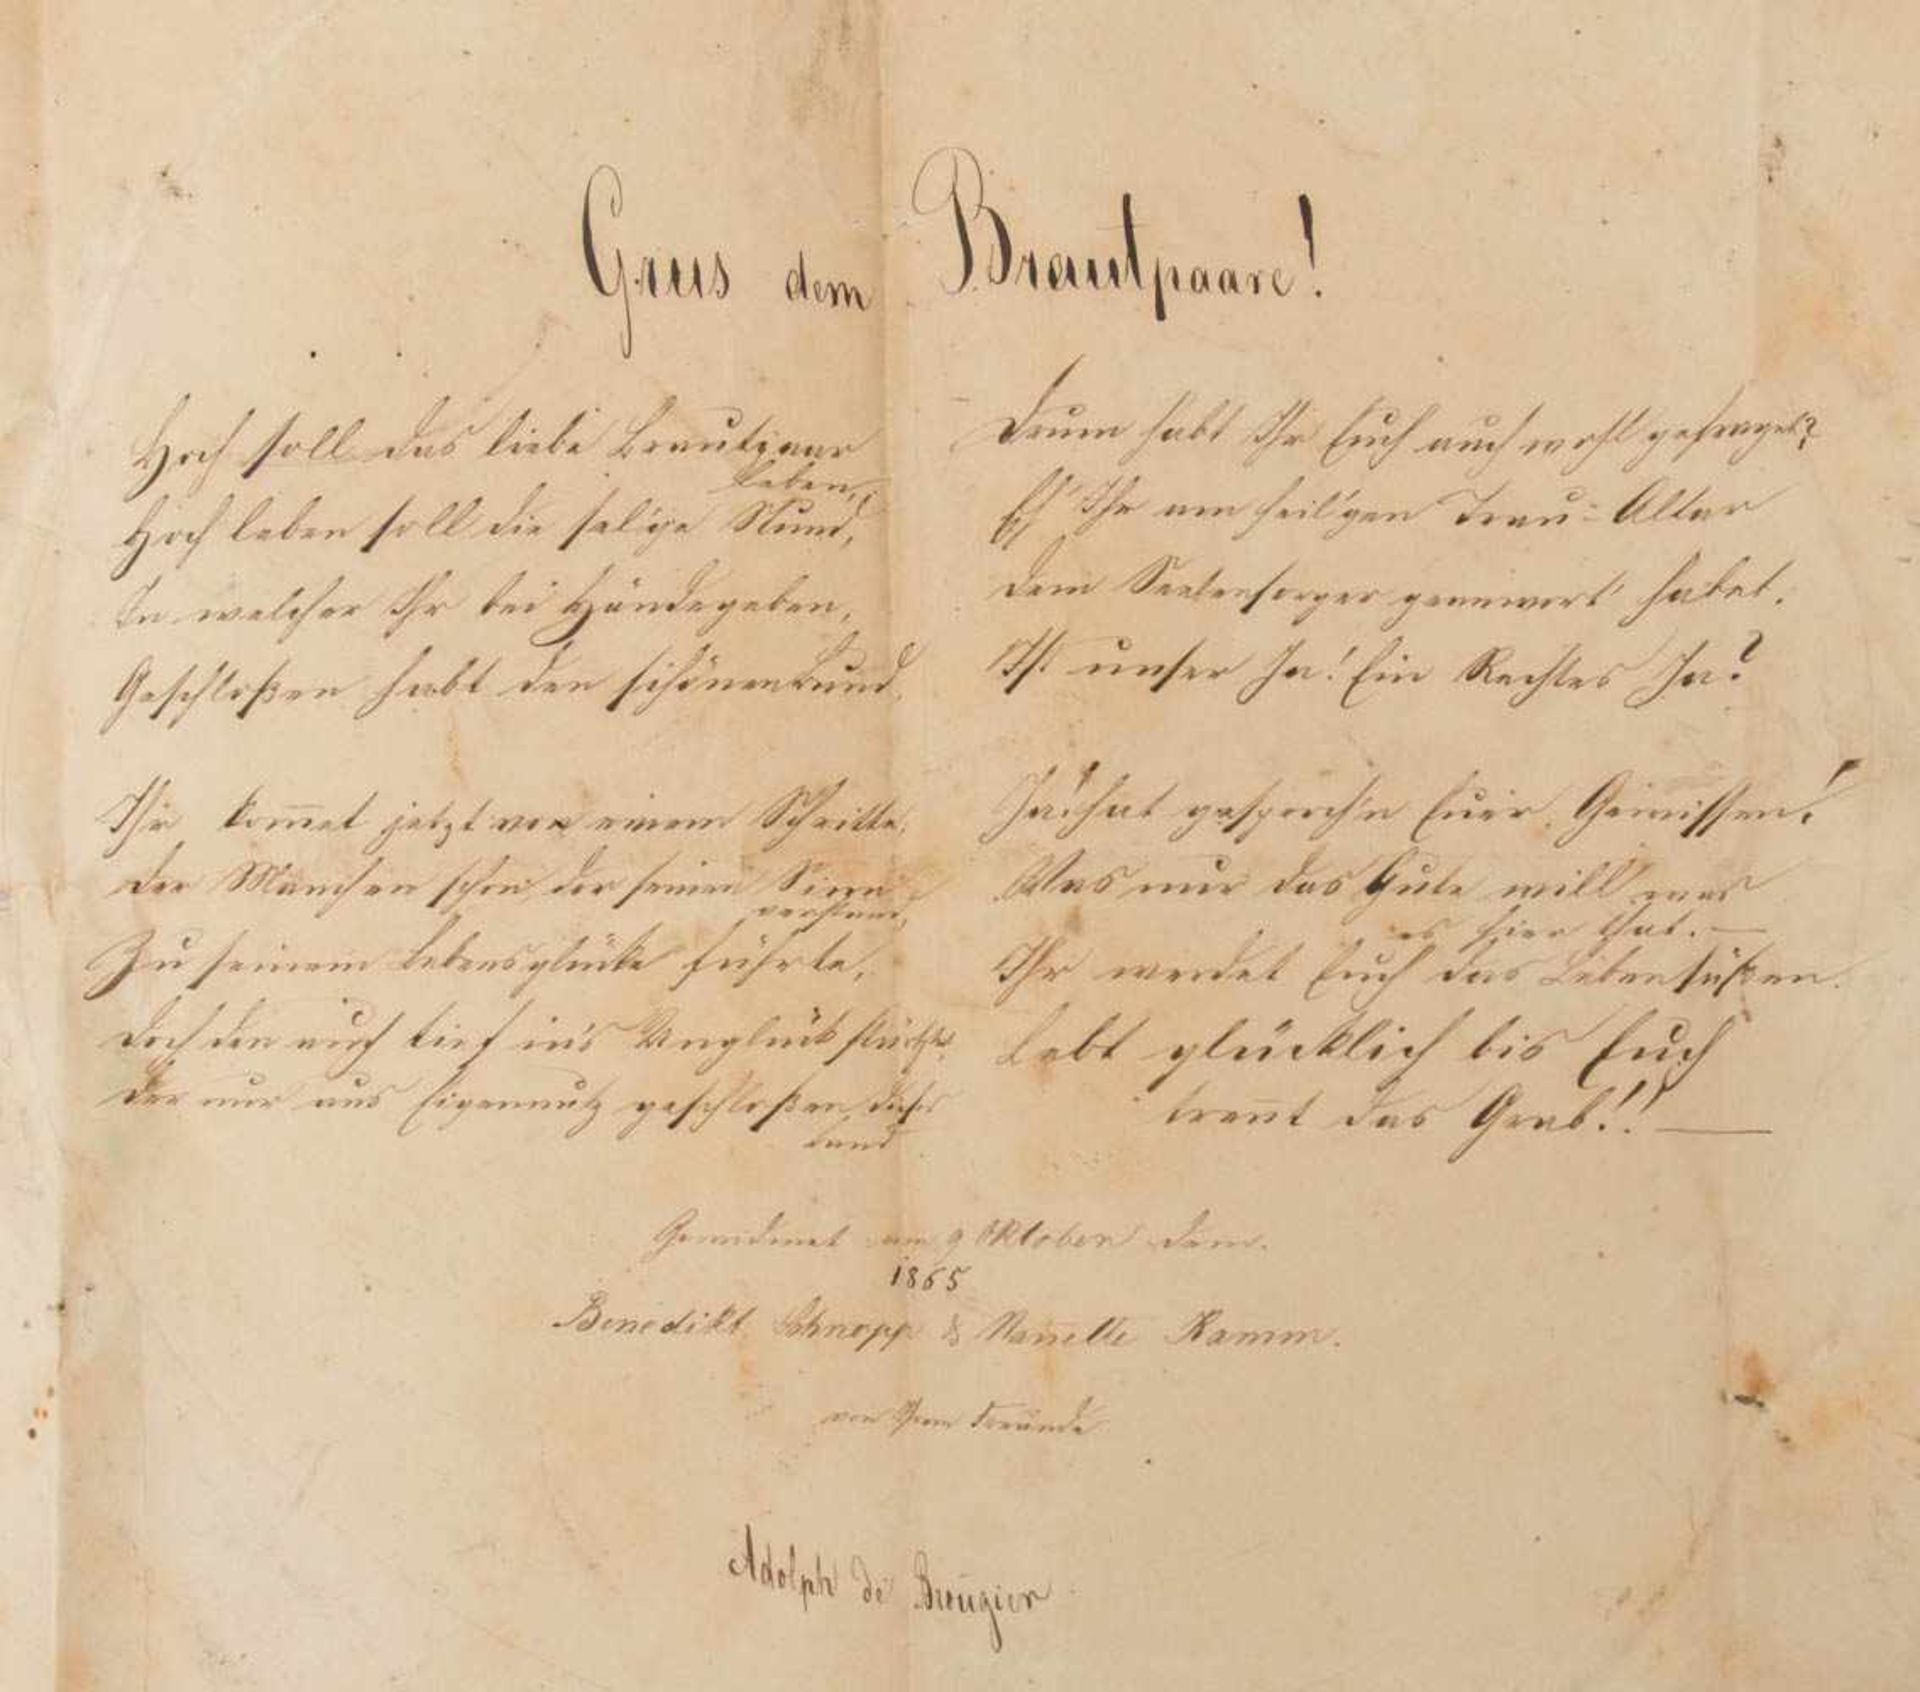 Grus dem Brautpaare!
Hoch soll das liebe Brautpaar
leben,
Hoch leben soll die selige Stund,
In welcher Ihr bei Händegeben,
Geschloßen habt den schönen Bund.
Ihr kom̅et jetzt von einem Schritte,
Der Manchen schon, der seinen Sinn
verstand,
Zu seinem Lebensglücke führte,
Doch den auch tief in's Unglück stürzte
Der nur aus Eigennutz geschloßen dieses
Band
Drum habt Ihr Euch auch wohl gefraget?
Eh' Ihr am heil'gen Trau-Altar
Dem Seelensorger habet.
Ist unser Ja! Ein Rechtes Ja?
Ja! hat gesproch'n Euer Gewissen!
Was nur das Gute will was
es hier that. —
Ihr werdet Euch das Leben süßen.
Lebt glücklich bis Euch
tren̅t das Grab!! —
Gewidmet am 9 Oktober dem.
1865
Benedikt Schnapp & Nan̅ette Ramm.
von Ihrem Freunde
Adolph de Brougier